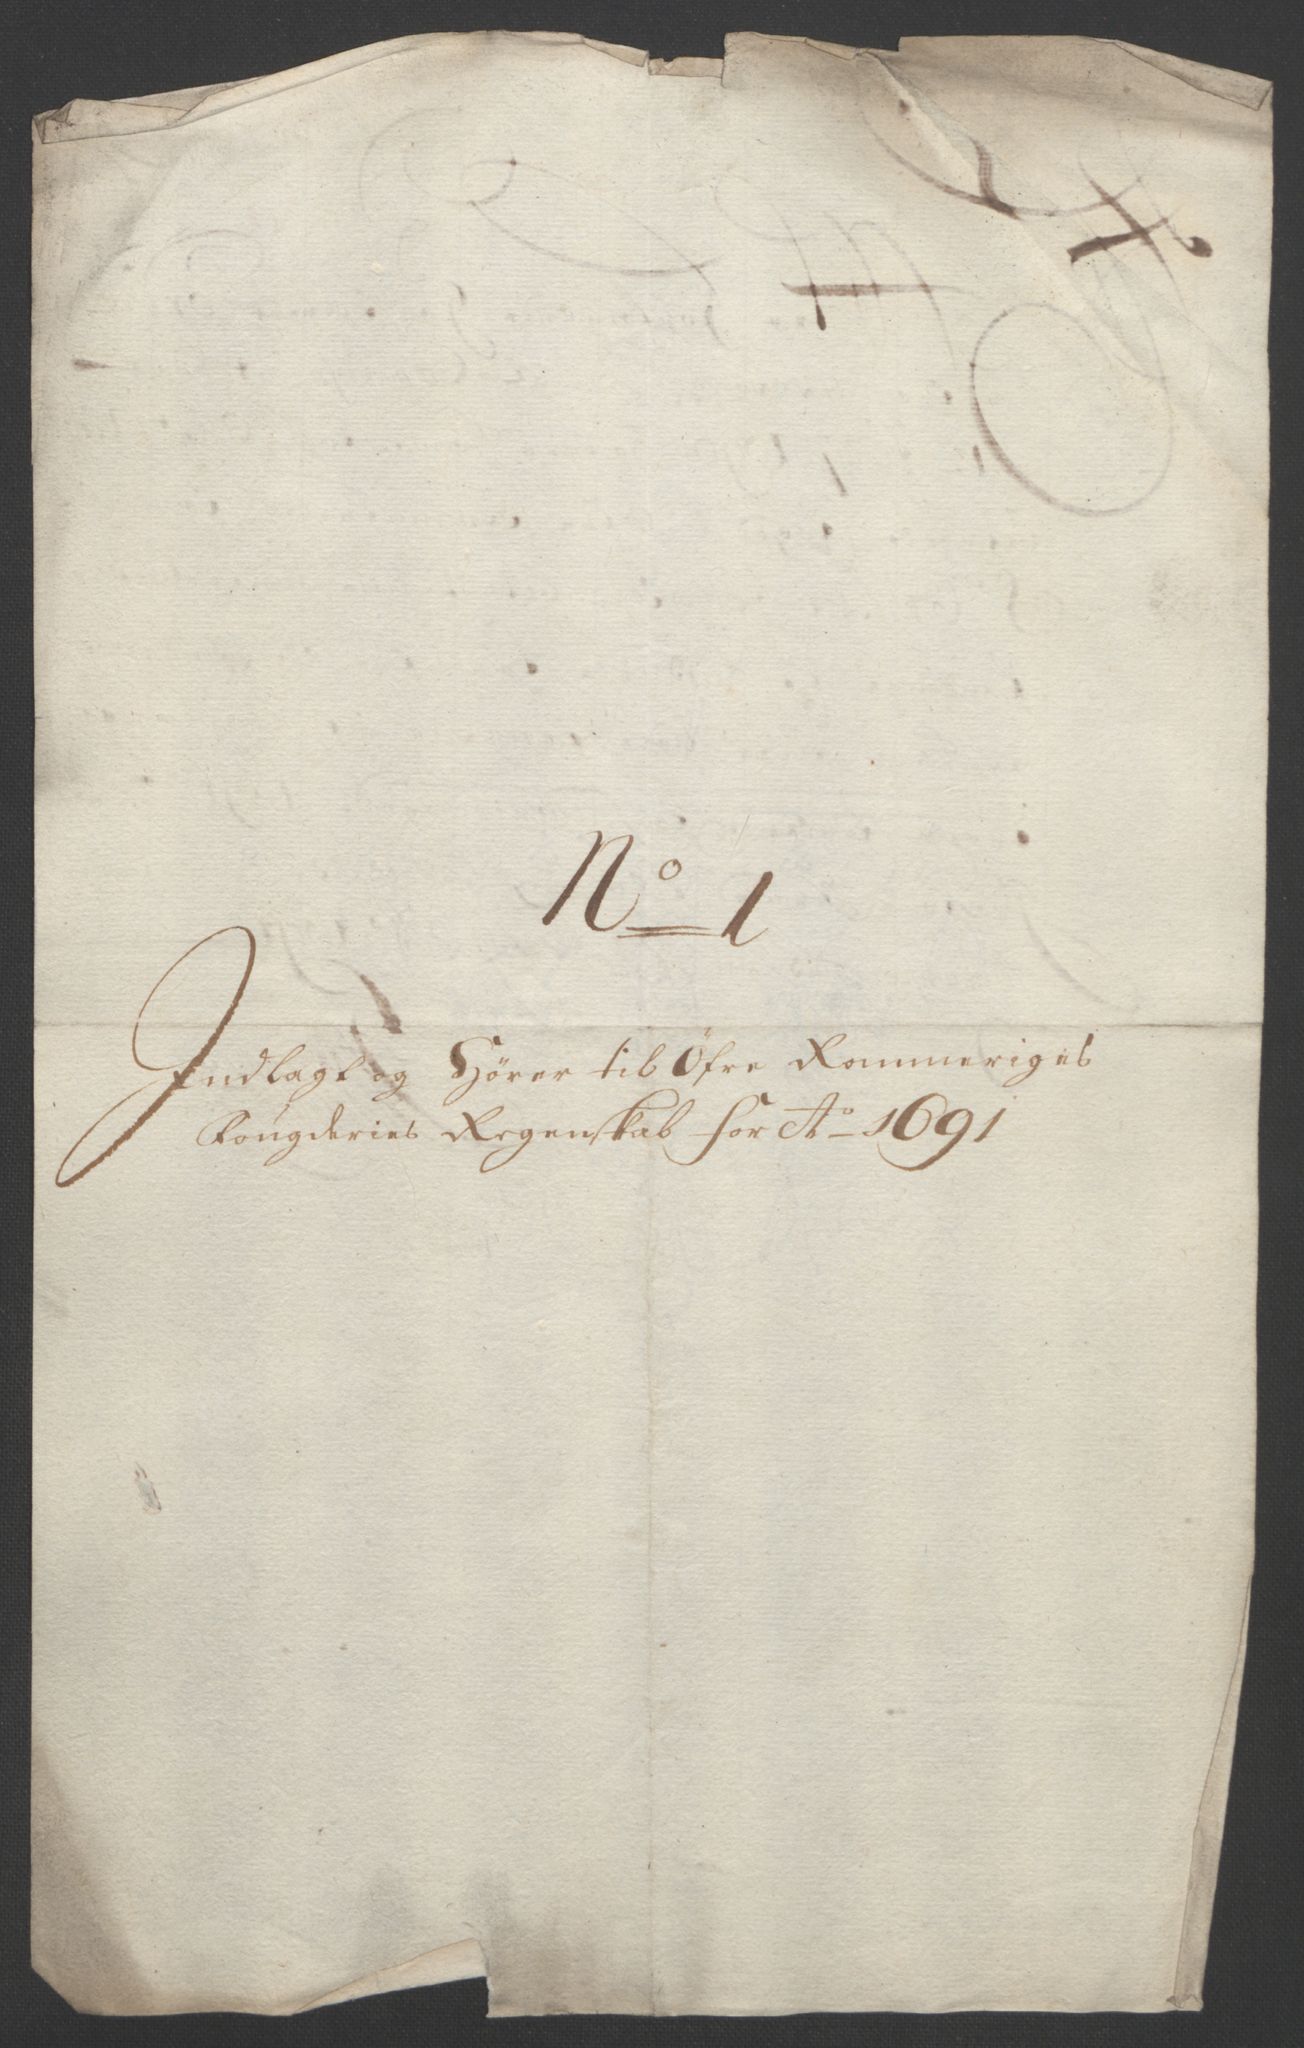 No 1
Indlagt og Hører til Øfre Rommeriges
Fougderies Regenskab for Ao 1691